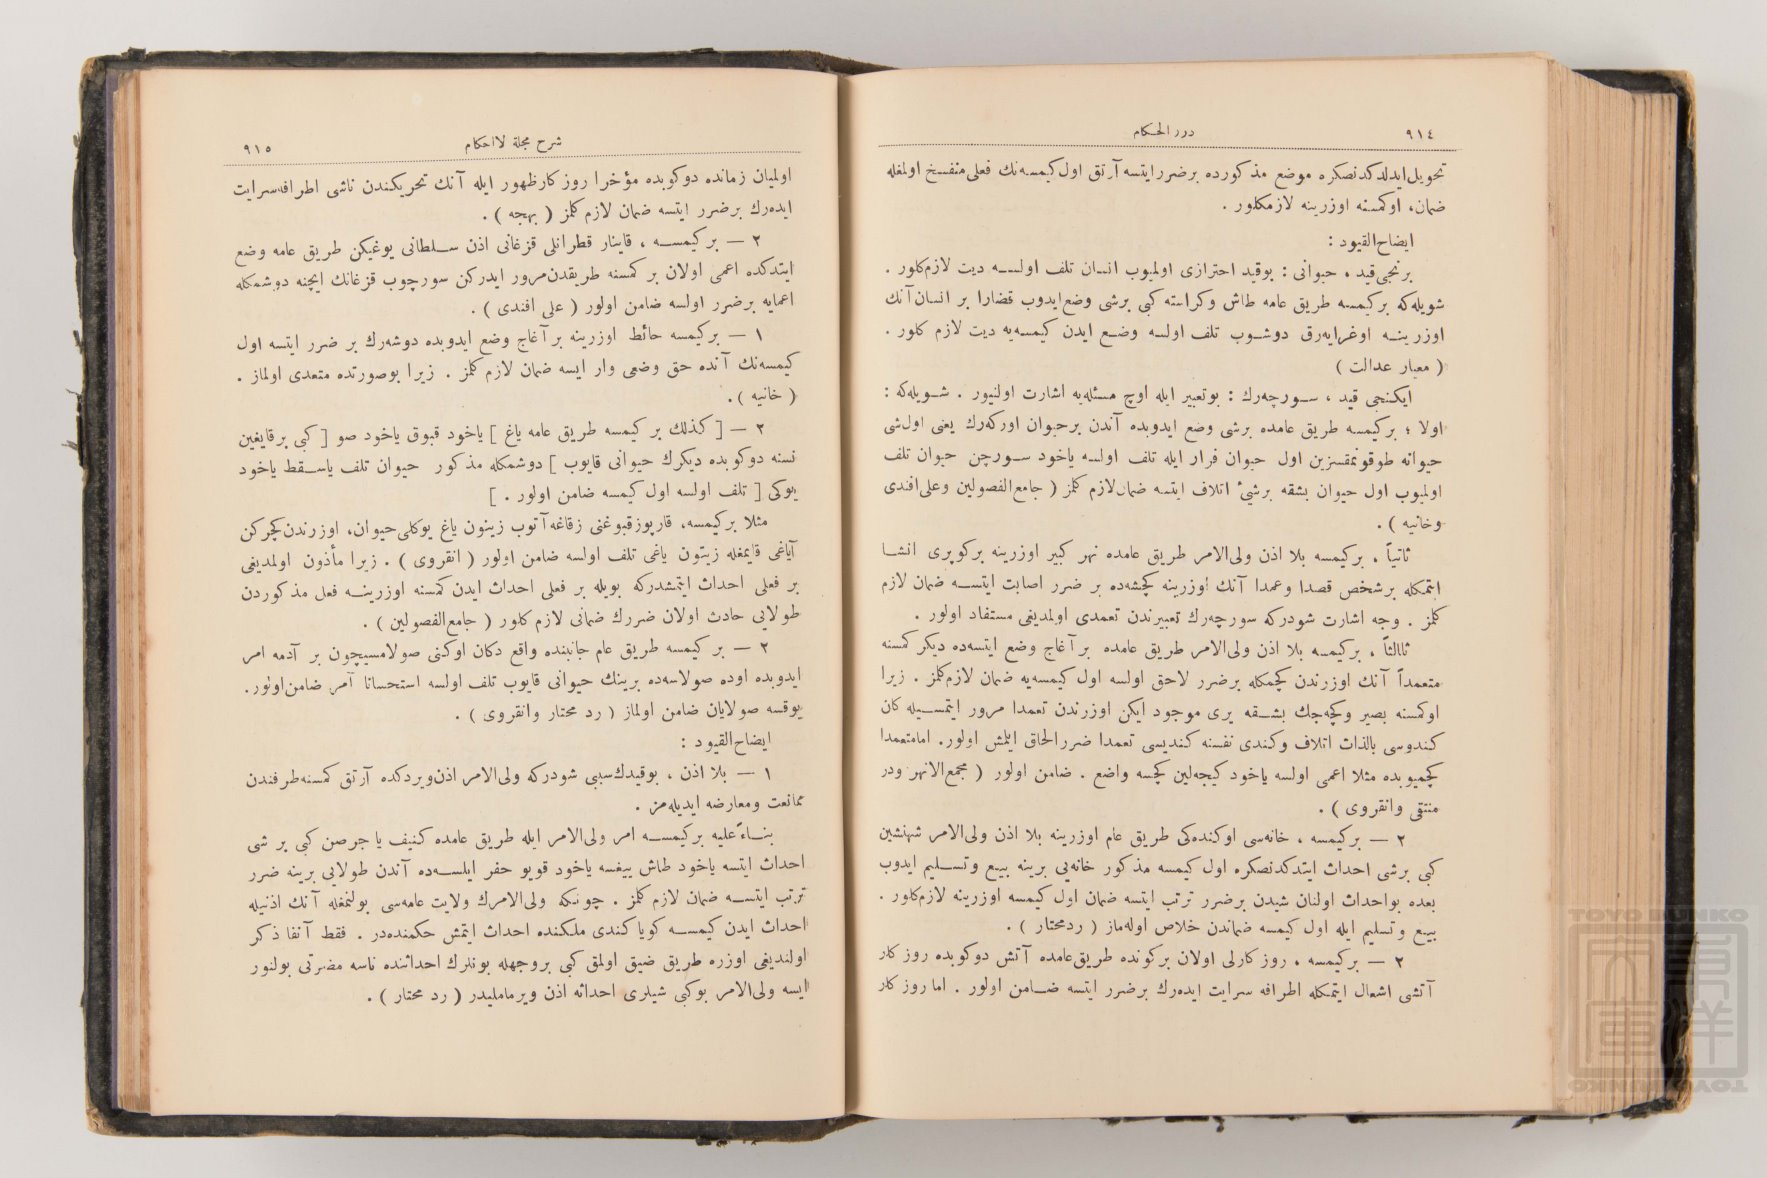 ٩١٤
درر الحكام
تحويل ايدلدكدنصكره موضع مذكورده برضرر ايتسه آرتق اول كيمسه‌نك فعلى منفسخ اولمغله
ضمان، اوكمسنه اوزرينه لازمكلور .
ايضاح القيود :
برنجى قيد ، حيوانى : بوقيد احترازى اولميوب انسان تلف اولسه ديت لازم‌كلور .
شويله‌كه بركيمسه طريق عامه طاش وكراسته كبى برشى وضع ايدوب قضارا بر انسان آنك
اوزرينه اوغرايه‌رق دوشوب تلف اولسه وضع ايدن كيمسه‌يه ديت لازم كلور .
( معيار عدالت )
ايكنجى قيد ، سورچه‌رك : بوتعبير ايله اوچ مسئله‌يه اشارت اولنيور . شويله‌كه :
اولا ؛ بركيمسه طريق عامده برشى وضع ايدوبده آندن برحيوان اوركه‌رك يعنى اول‌شى
حيوانه طوقونمقسزين اول حيوان فرار ايله تلف اولسه ياخود سورچن حيوان تلف
اولميوب اول حيوان بشقه برشيئ اتلاف ايتسه ضمان لازم كلز ( جامع الفصولين وعلى افندى
وخانيه ) .
ثانياً ، بركيمسه بلا اذن ولى‌الامر طريق عامده نهر كبير اوزرينه بركوپرى انشا
ايتمكله برشخص قصدا وعمدا آنك اوزرينه كچشه‌ده بر ضرر اصابت ايتسه ضمان لازم
كلز . وجه اشارت شودركه سورچه‌رك تعبيرندن تعمدى اولمديغى مستفاد اولور .
ثاالثاً ، بركيمسه بلا اذن ولى‌الامر طريق عامده بر آغاج وضع ايتسه‌ده ديكر كمسنه
متعمداً آنك اوزرندن كچمكله برضرر لاحق اولسه اول كيمسه‌يه ضمان لازم‌كلز . زيرا
اوكمسنه بصير وكچه‌جك بشقه يرى موجود ايكن اوزرندن تعمدا مرور ايتمسيله كان
كندوسى بالذات اتلاف وكندى نفسنه كنديسى تعمدا ضرر الحاق ايلمش اولور. امامتعمدا
كچميوبده مثلا اعمى اولسه ياخود كيجه‌لين كچسه واضع . ضامن اولور ( مجمع‌الانهر ودر
منتقى وانقروى ) .
٢ — بركيمسه ، خانه‌سى اوكنده‌كى طريق عام اوزرينه بلا اذن ولى‌الامر شهنشين
كبى برشى احداث ايتدكدنصكره اول كيمسه مذكور خانه‌يى برينه بيع وتسليم ايدوب
بعده بواحداث اولنان شيدن برضرر ترتب ايتسه ضمان اول كيمسه اوزرينه لازم‌كلور .
بيع وتسليم ايله اول كيمسه ضماندن خلاص اوله‌ماز ( ردمحتار ) .
٢ — بركيمسه ، روز كارلى اولان بركونده طريق عامده آتش دوكوبده روز كار
آتشى اشعال ايتمكله اطرافه سرايت ايده‌رك برضرر ايتسه ضامن اولور . اما روز كار
شرح مجلة لااحكام
٩١٥
اولميان زمانده دوكوبده مؤخرا روز كارظهور ايله آنك تحريكندن ناشى اطرافه‌سرايت
ايده‌رك برضرر ايتسه ضمان لازم كلز ( بهجه ) .
٢ — بر كيمسه ، قاينار قطرانلى قزغانى اذن سلطانى يوغيكن طريق عامه وضع
ايتدكده اعمى اولان بر كمسنه طريقدن‌مرور ايدركن سورچوب قزغانك ايچنه دوشمكله
اعمايه برضرر اولسه ضامن اولور ( على افندى ) .
١ — بركيمسه حائط اوزرينه بر آغاج وضع ايدوبده دوشه‌رك بر ضرر ايتسه اول
كيمسه‌نك آنده حق وضعى وار ايسه ضمان لازم كلز . زيرا بوصورتده متعدى اولماز .
( خانيه ) .
٢ — [ كذلك بر كيمسه طريق عامه ياغ ] ياخود قبوق ياخود صو [ كبى برقايغين
نسنه دوكوبده ديكرك حيوانى قايوب ] دوشمكله مذكور حيوان تلف ياسقط ياخود
يوكى [ تلف اولسه اول كيمسه ضامن اولور . ]
مثلا بركيمسه، قارپوزقبوغنى زقاغه‌آتوب زيتون ياغ يوكلى‌حيوان، اوزرندن‌كچركن
آياغى قايمغله زيتون ياغى تلف اولسه ضامن اولور ( انقروى ) . زيرا مأذون اولمديغى
بر فعلى احداث ايتمشدركه بويله بر فعلى احداث ايدن كمسنه اوزرينه فعل مذكوردن
طولايى حادث اولان ضررك ضمانى لازم كلور ( جامع‌الفصولين ) .
٢ — بر كيمسه طريق عام جانبنده واقع دكان اوكنى صولامسيچون بر آدمه امر
ايدوبده اوده صولاسه‌ده برينك حيوانى قايوب تلف اولسه استحسانا آمر ضامن‌اولور.
يوقسه صولايان ضامن اولماز ( رد محتار وانقروى ) .
ايضاح القيود :
١ — بلا اذن ، بوقيدك‌سببى شودركه ولى‌الامر اذن‌ويردكده آرتق كمسنه‌طرفندن
ممانعت ومعارضه ايديله‌مز .
بناءً عليه بركيمسه امر ولى‌الامر ايله طريق عامده كنيف يا جرصن كبى بر شى
احداث ايتسه ياخود طاش ييغسه ياخود قويو حفر ايلسه‌ده آندن طولايى برينه ضرر
ترتب ايتسه ضمان لازم كلز . چونكه ولى‌الامرك ولايت عامه‌سى بولنمغله آنك اذنيله
احداث ايدن كيمسه كويا كندى ملكنده احداث ايتمش حكمنده‌در . فقط آنفا ذكر
اولنديغى اوزره طريق ضيق اولمق كبى بروجهله بونلرك احداثنده ناسه مضرتى بولنور
ايسه ولى‌الامر بوكبى شيلرى احداثه اذن ويرمامليدر ( رد محتار ) .
TOYO BUNKO